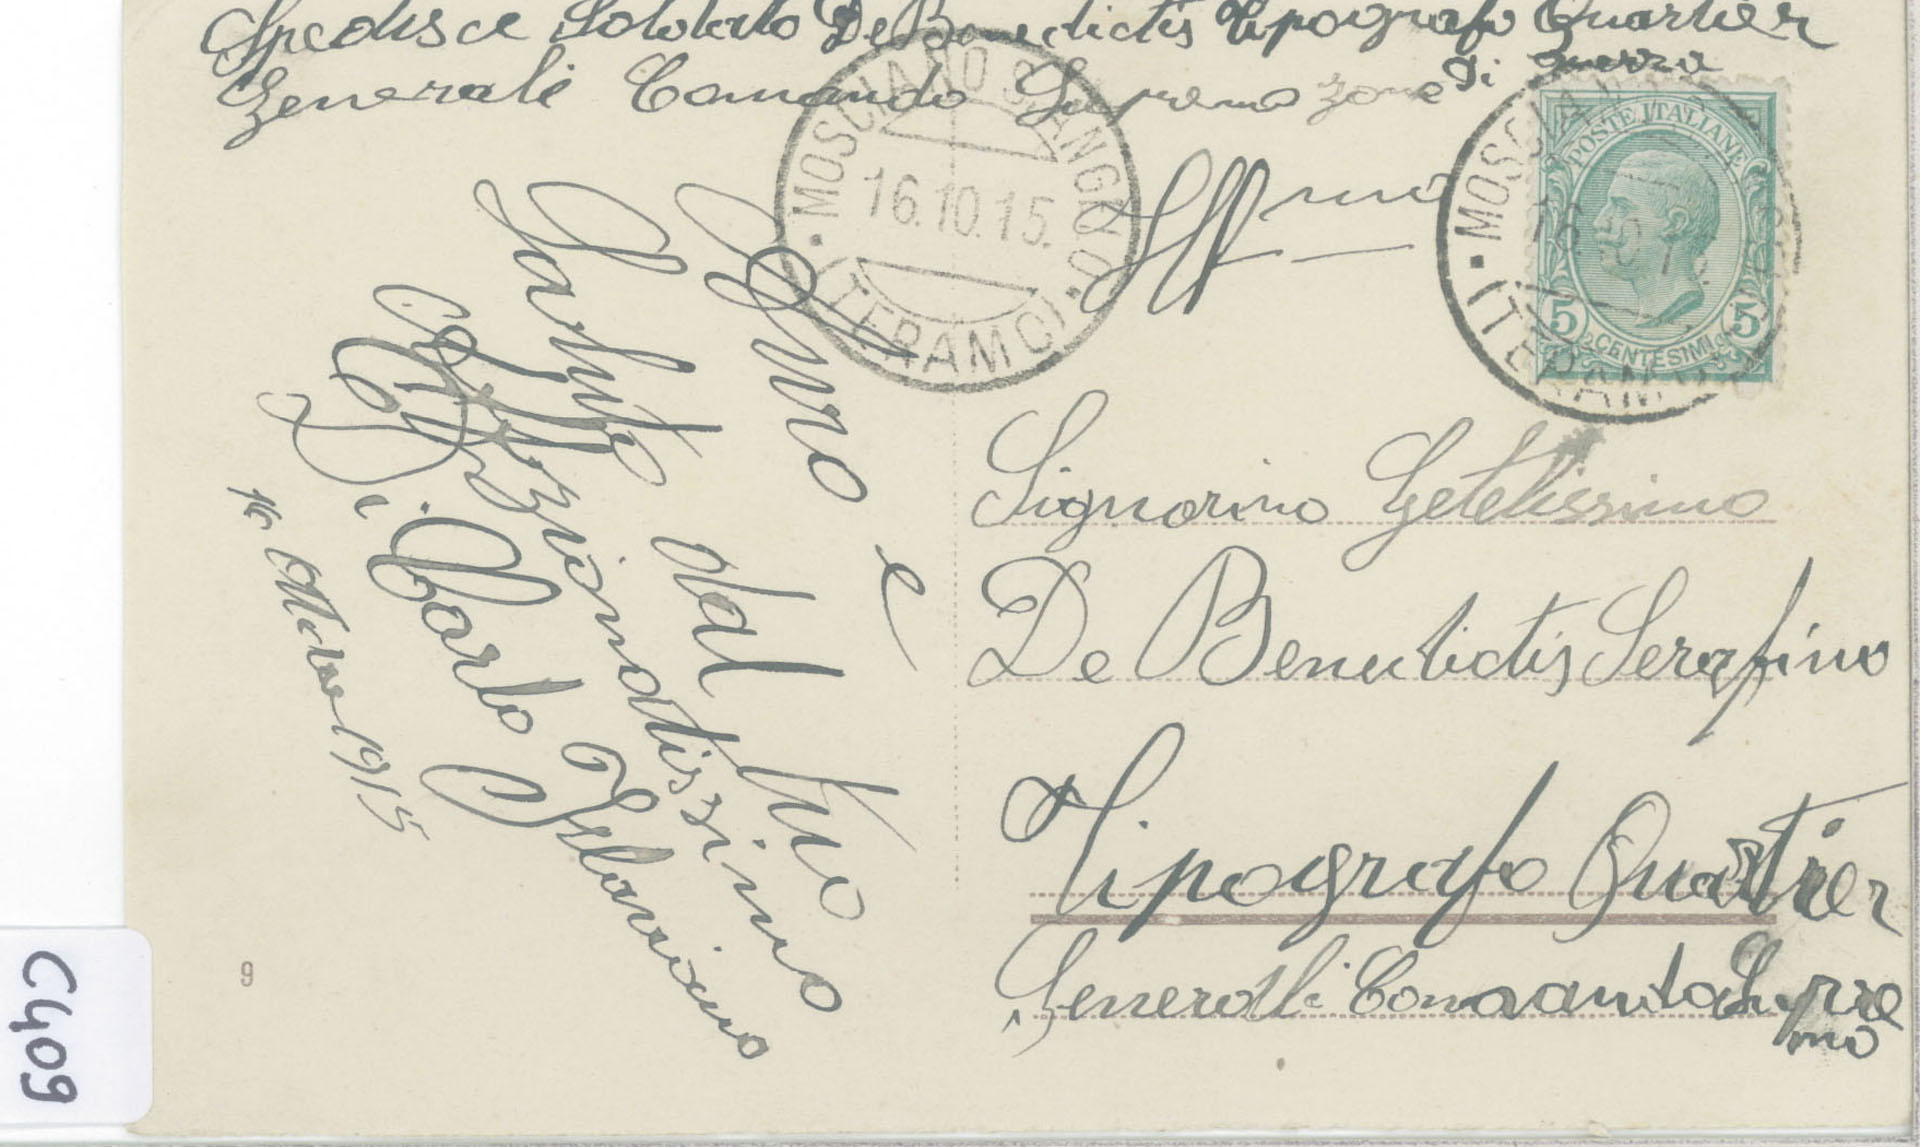 Spedisce Soldato De Benedictis Tipografo Quartier
Generale Comando Supremo zone di guerra
MOSCIANO S. ANGELO
16.10.15.
(TERAMO)
POSTE ITALIANE
5 CENTESIMI 5
MOSCIANO
(TERAMO
e
Saluto dal tuo
Affezionatissimo
Di Carlo Ilarino
16 Ottobre 1915
Signorino
De Benedictis Serafino
Tipografo Quartier
Generale Comando Supre
mo
9
C409